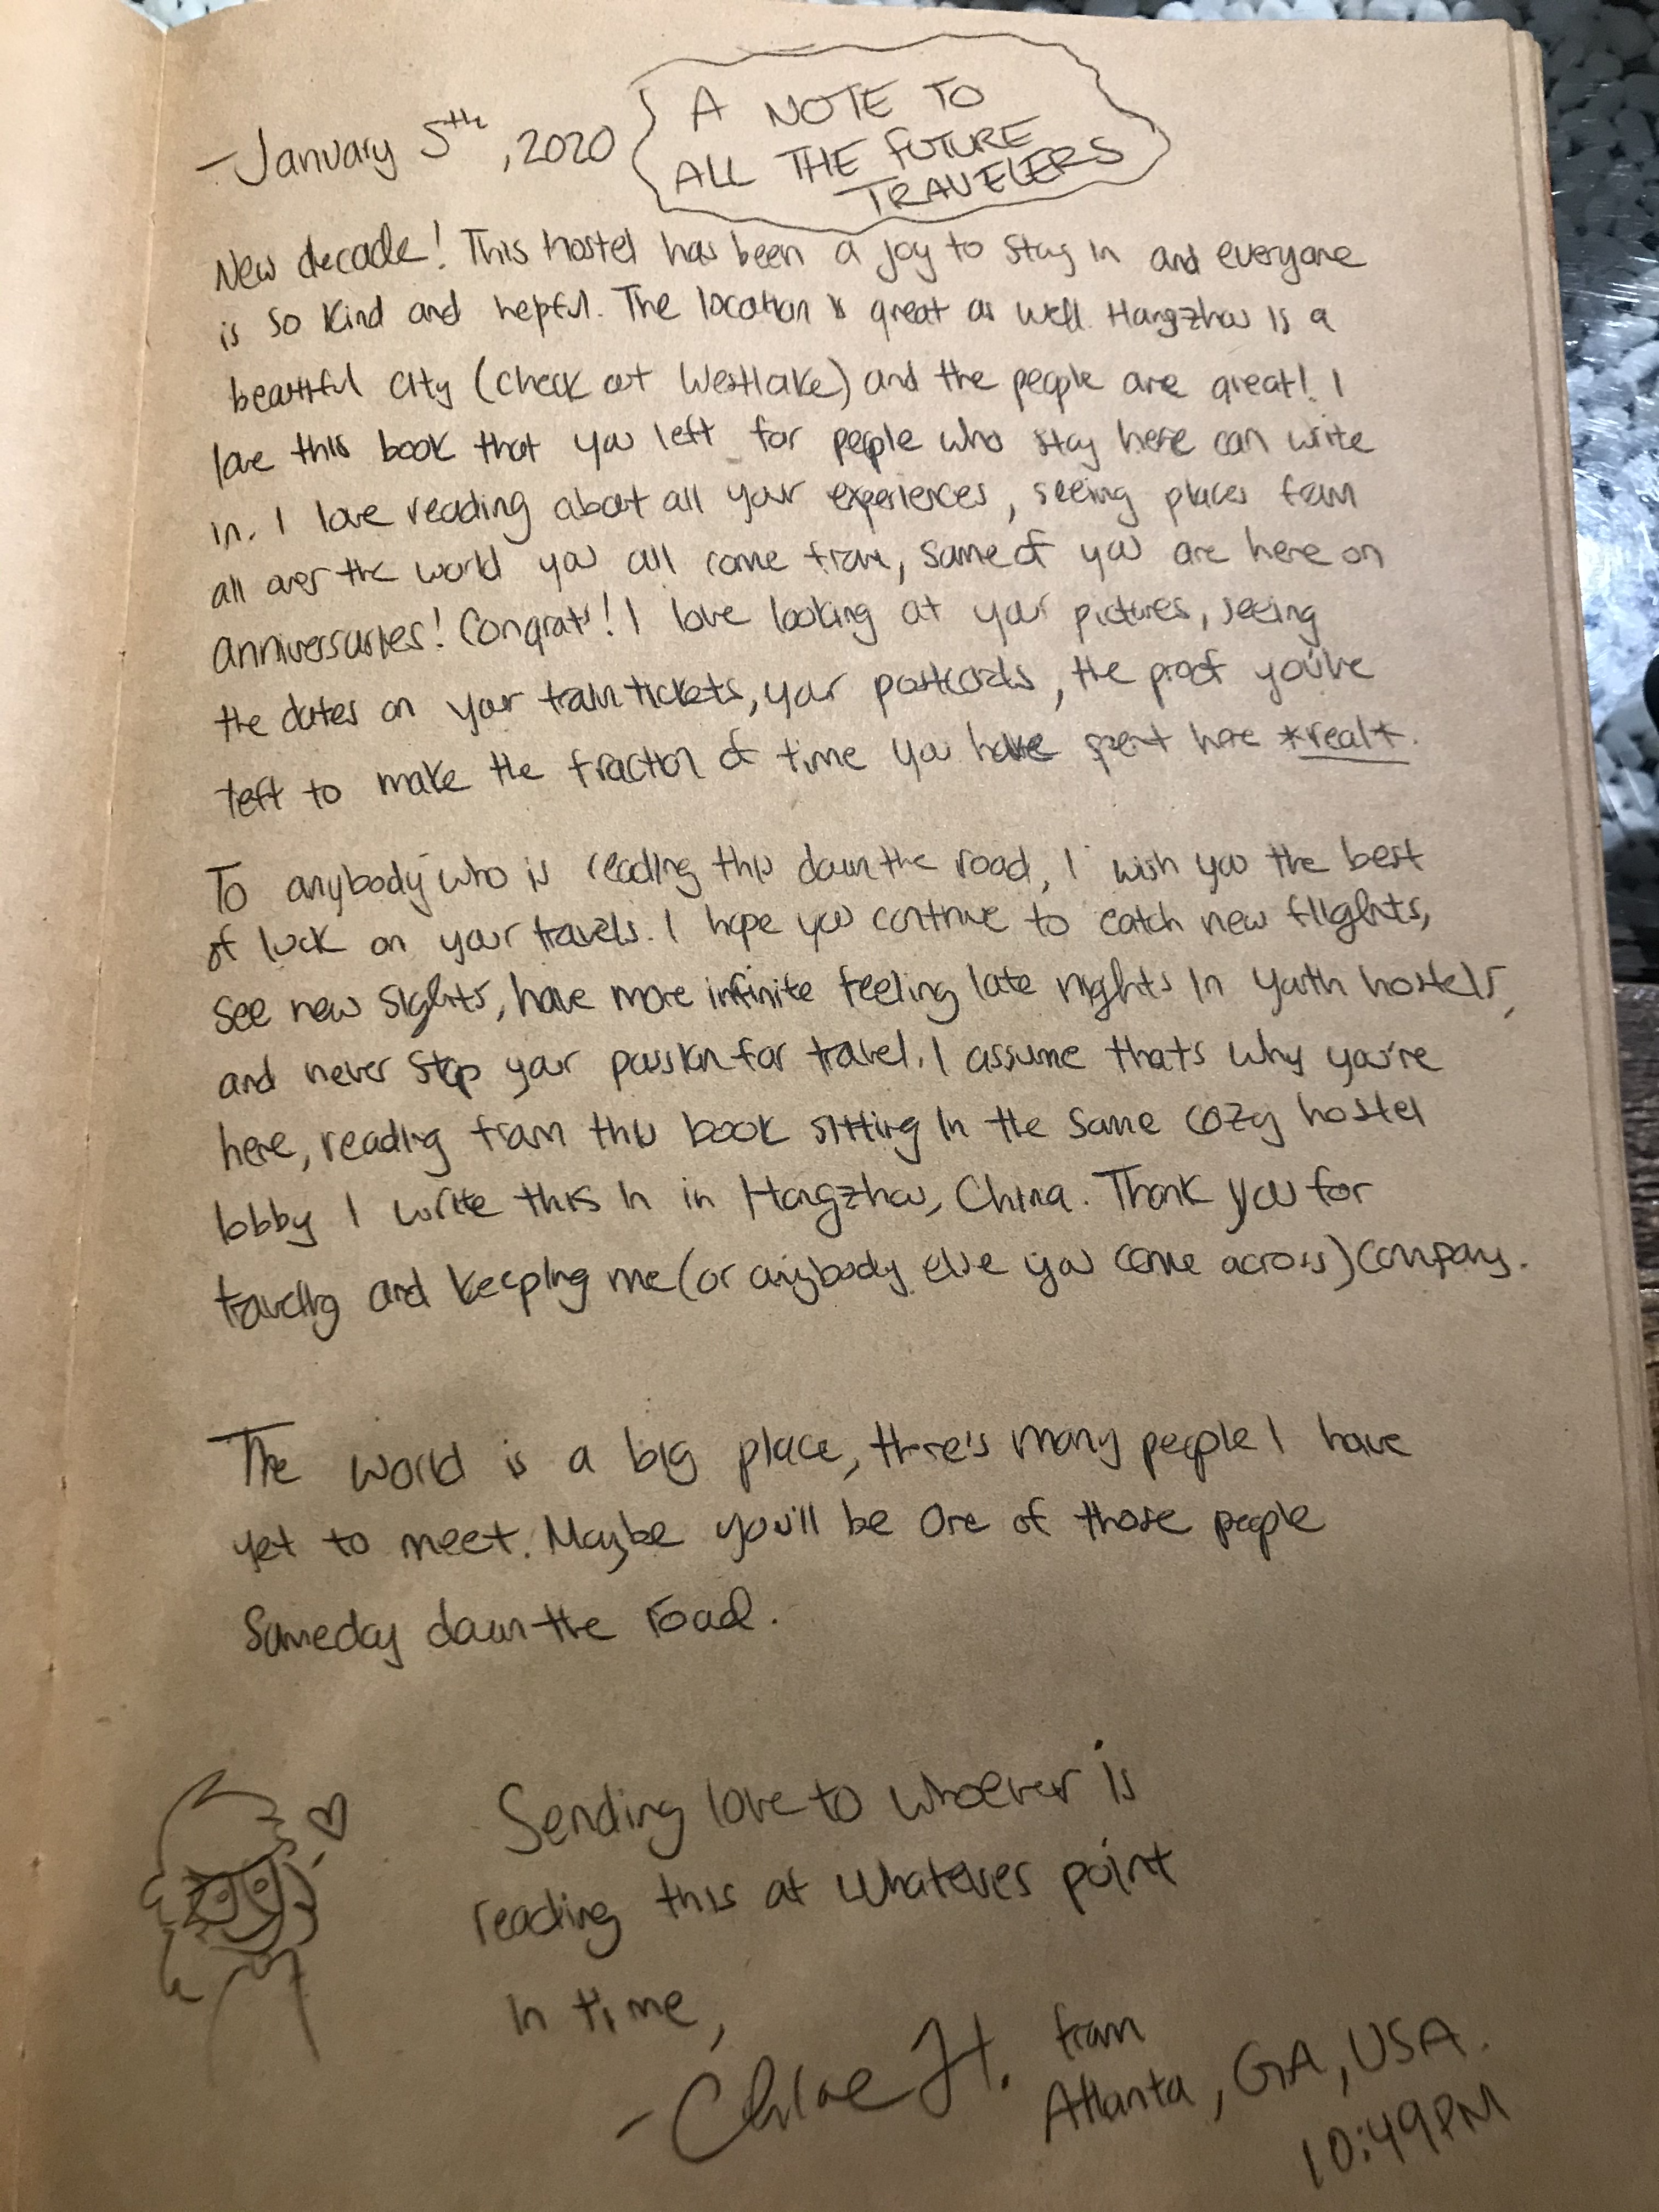 - January 5th, 2020
A NOTE TO
ALL THE FUTURE
TRAVELERS
New decade! This hostel has been a joy to stay in and everyone
is so kind and hepful. The location is great as well. Hangzhou is a
beautiful city (check out Westlake) and the people are great! I
love this book that you left for people who stay here can write
in. I love reading about all your experiences, seeing places from
all over the world you all come from, some of you are here on
anniversaries! Congrats! I love looking at your pictures, seeing
the dates on your train tickets, your postcards, the proof you've
left to make the fraction of time you have spent here *real*.
To anybody who is reading this down the road, I wish you the best
of luck on your travels. I hope you continue to catch new flights,
see new sights, have more infinite feeling late nights in youth hostels,
and never stop your passion for travel. I assume that's why you're
here, reading from this book sitting in the same cozy hostel
lobby I write this in in Hangzhou, China. Thank you for
traveling and keeping me (or anybody else you come across) company.
The world is a big place, there's many people I have
yet to meet. Maybe you'll be one of those people
someday down the road.
Sending love to whoever is
reading this at whatever point
in time,
- Chloe H. from
Atlanta, GA, USA.
10:49PM